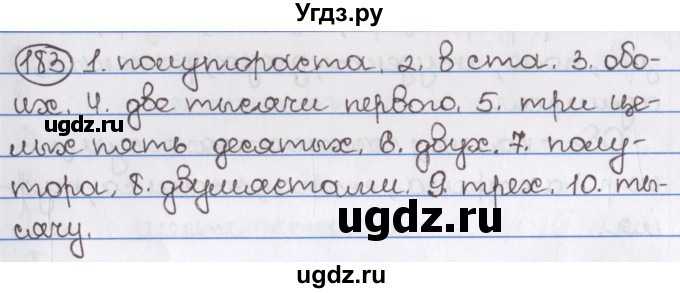 Угдз.ру
183 1. полутораста. 2. в ста. 3. обо-
их. 4. две тысячи первого. 5. три це-
лых пять десятых. 6. двух. 7. полу-
тора. 8. двумястами. 9. трех. 10. ты-
сячу.
ugdz.ru
ugdz.ru
ugdz.ru
ugdz.ru